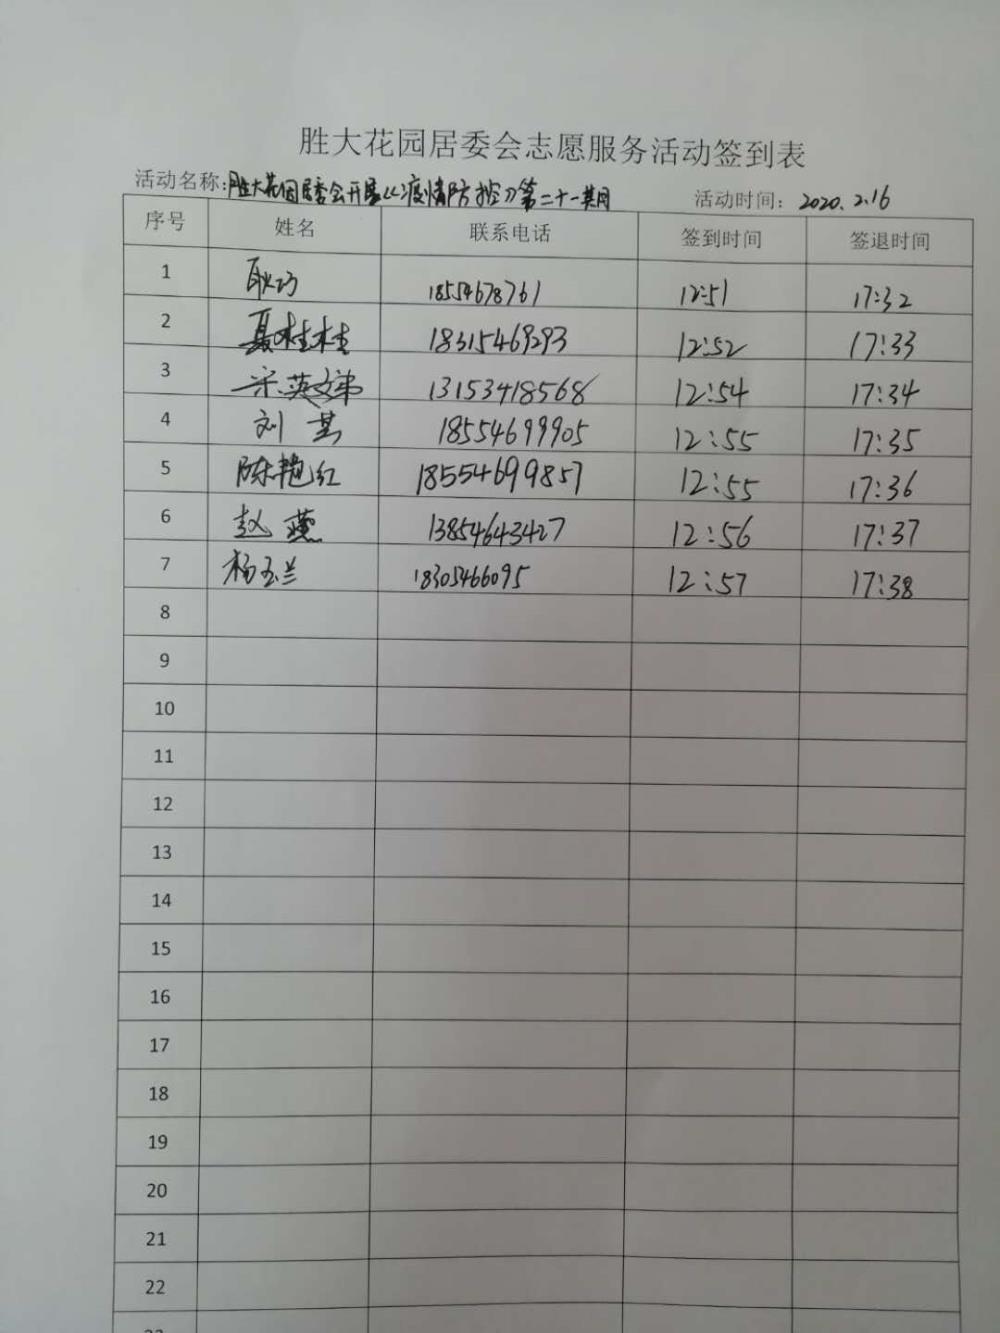 胜大花园居委会志愿服务活动签到表
活动名称:胜大花园居委会开展《疫情防控》第二十一期 活动时间: 2020.2.16
序号 姓名 联系电话 签到时间 签退时间
1 耿巧 18554678761 12:51 17:32
2 聂桂桂 18315469293 12:52 17:33
3 宋英 13153418568 12:54 17:34
4 刘 18554699905 12:55 17:35
5 陈艳红 18554699857 12:55 17:36
6 赵燕 13854643427 12:56 17:37
7 杨玉兰 18305466095 12:57 17:38
8
9
10
11
12
13
14
15
16
17
18
19
20
21
22